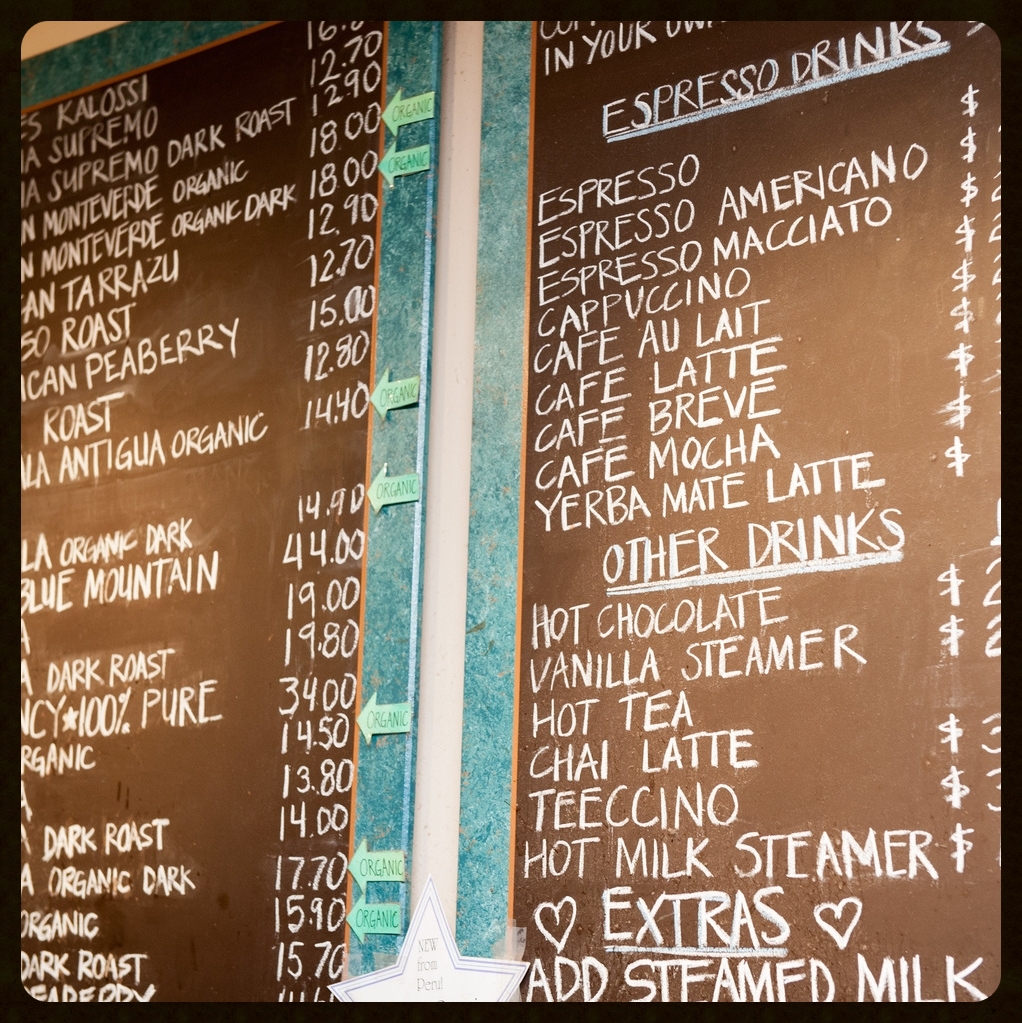 KALOSSI
SUPREMO 12.70
SUPREMO DARK ROAST 12.90
MONTEVERDE ORGANIC 18.00 ORGANIC
MONTEVERDE ORGANIC DARK 18.00 ORGANIC
AN TARRAZU 12.90
SO ROAST 12.70
ICAN PEABERRY 15.00
ROAST 12.80
LA ANTIGUA ORGANIC 14.40 ORGANIC
LA ORGANIC DARK 14.90 ORGANIC
BLUE MOUNTAIN 44.00
A 19.00
A DARK ROAST 19.80
NCY*100% PURE 34.00
RGANIC 14.50 ORGANIC
A 13.80
A DARK ROAST 14.00
A ORGANIC DARK 17.70 ORGANIC
ORGANIC 15.90 ORGANIC
DARK ROAST 15.70
EABERRY
NEW
from
Peru!
IN YOUR OWN
ESPRESSO DRINKS
ESPRESSO $
ESPRESSO AMERICANO $
ESPRESSO MACCIATO $
CAPPUCCINO $
CAFE AU LAIT $
CAFE LATTE $
CAFE BREVE $
CAFE MOCHA $
YERBA MATE LATTE $
OTHER DRINKS
HOT CHOCOLATE $ 2
VANILLA STEAMER $ 2
HOT TEA
CHAI LATTE $ 3
TEECCINO $ 3
HOT MILK STEAMER $
♡ EXTRAS ♡
ADD STEAMED MILK